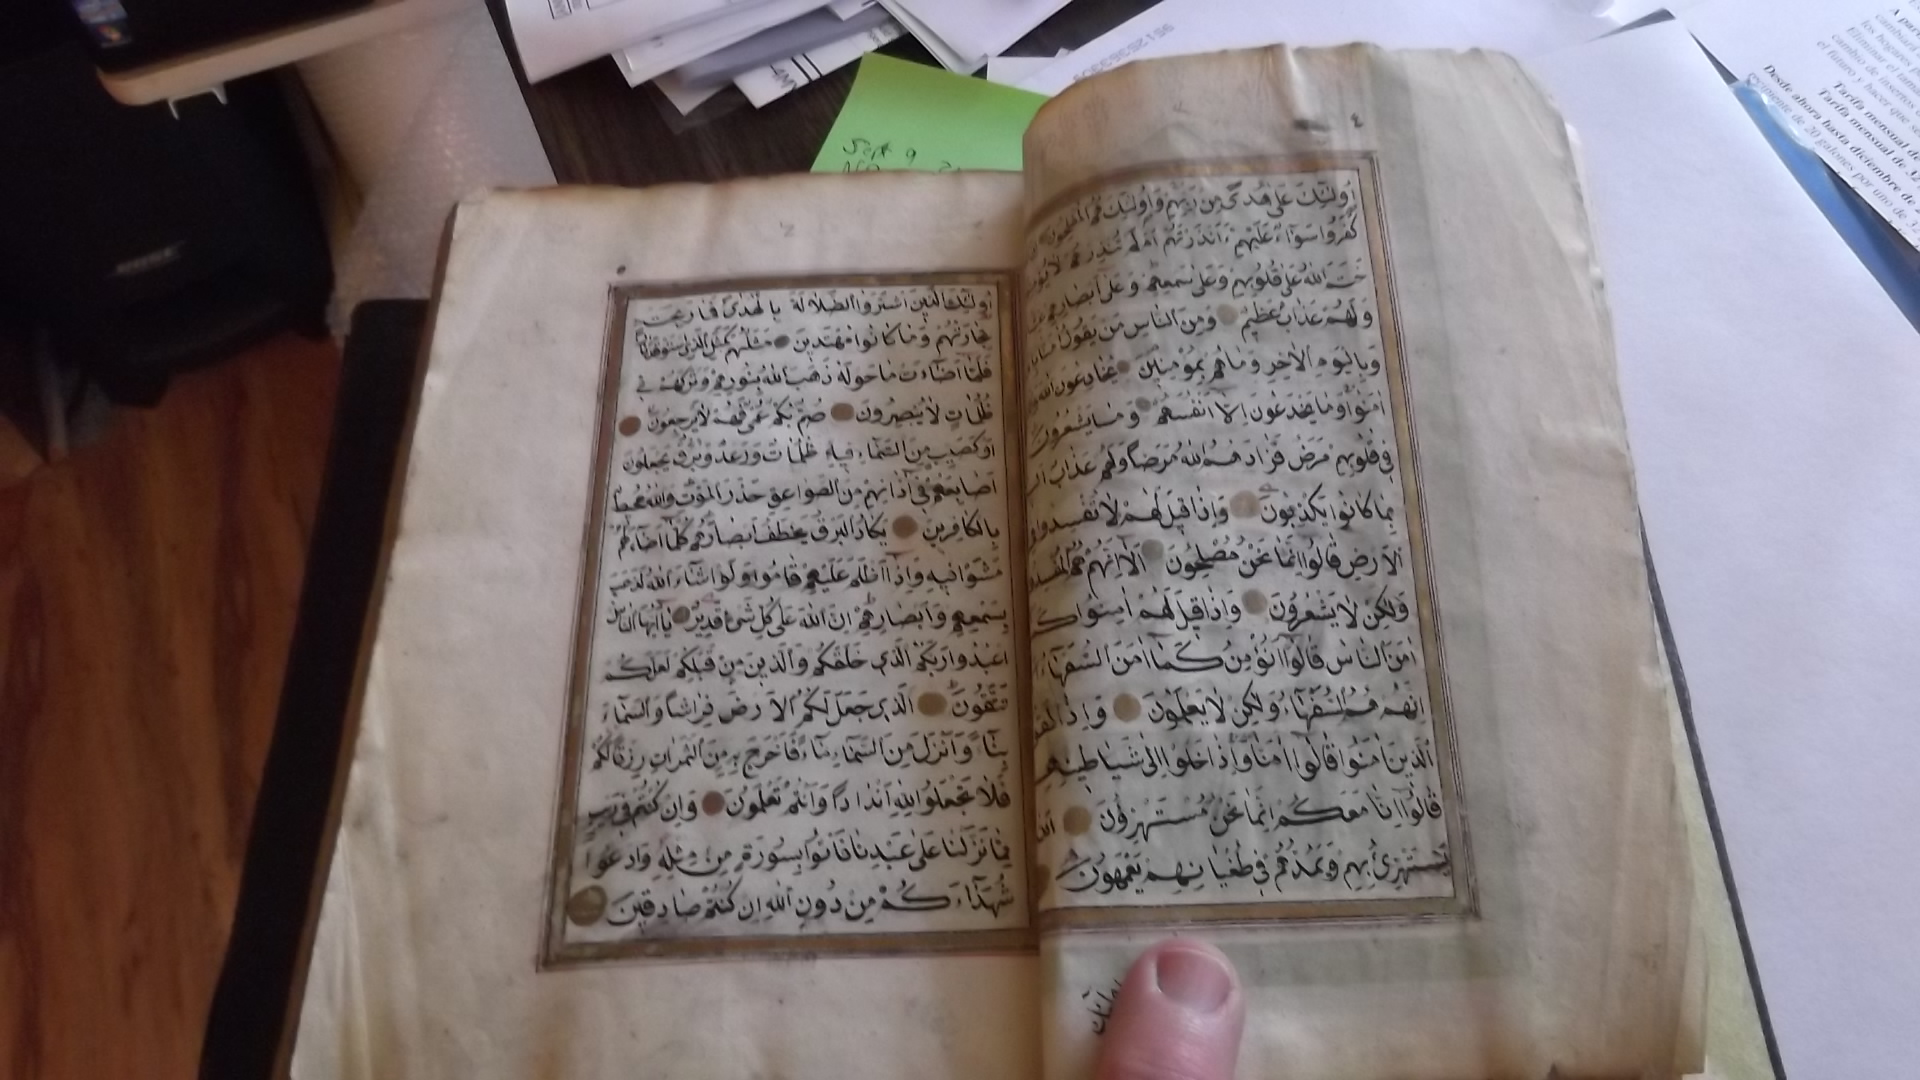 ٤
أولئك على هدى من ربهم وأولئك هم المفلحون
كفروا سواء عليهم ءأنذرتهم أم لم تنذرهم لا يؤمنون
ختم الله على قلوبهم وعلى سمعهم وعلى أبصارهم
ولهم عذاب عظيم ومن الناس من يقول امنا
وباليوم الاخر وما هم بمؤمنين يخادعون الله
امنوا وما يخدعون الا انفسهم وما يشعرون
في قلوبهم مرض فزادهم الله مرضا ولهم عذاب
بما كانوا يكذبون واذا قيل لهم لا تفسدوا
الارض قالوا انما نحن مصلحون الا انهم هم
ولكن لا يشعرون واذا قيل لهم امنوا
امن الناس قالوا انؤمن كما امن السفهاء
انهم هم السفهاء ولكن لا يعلمون واذا
الذين امنوا قالوا امنا واذا خلوا الى شياطينهم
قالوا انا معكم انما نحن مستهزؤن الله
يستهزئ بهم ويمدهم في طغيانهم يعمهون
اولئك الذين اشتروا الضلالة بالهدى فما ربحت
تجارتهم وما كانوا مهتدين مثلهم كمثل الذي استوقد نارا
فلما اضاءت ما حوله ذهب الله بنورهم وتركهم في
ظلمات لا يبصرون صم بكم عمي فهم لا يرجعون
او كصيب من السماء فيه ظلمات ورعد وبرق يجعلون
اصابعهم في اذانهم من الصواعق حذر الموت والله محيط
بالكافرين يكاد البرق يخطف ابصارهم كلما اضاء لهم
مشوا فيه واذا اظلم عليهم قاموا ولو شاء الله لذهب
بسمعهم وابصارهم ان الله على كل شئ قدير يا ايها الناس
اعبدوا ربكم الذي خلقكم والذين من قبلكم لعلكم
تتقون الذي جعل لكم الارض فراشا والسماء
بناء وانزل من السماء ماء فاخرج به من الثمرات رزقا لكم
فلا تجعلوا لله اندادا وانتم تعلمون وان كنتم في ريب
مما نزلنا على عبدنا فاتوا بسورة من مثله وادعوا
شهداءكم من دون الله ان كنتم صادقين
Sept 9
Desde ahora hasta diciembre de
Tarifa mensual de
Tarifa mensual de 32